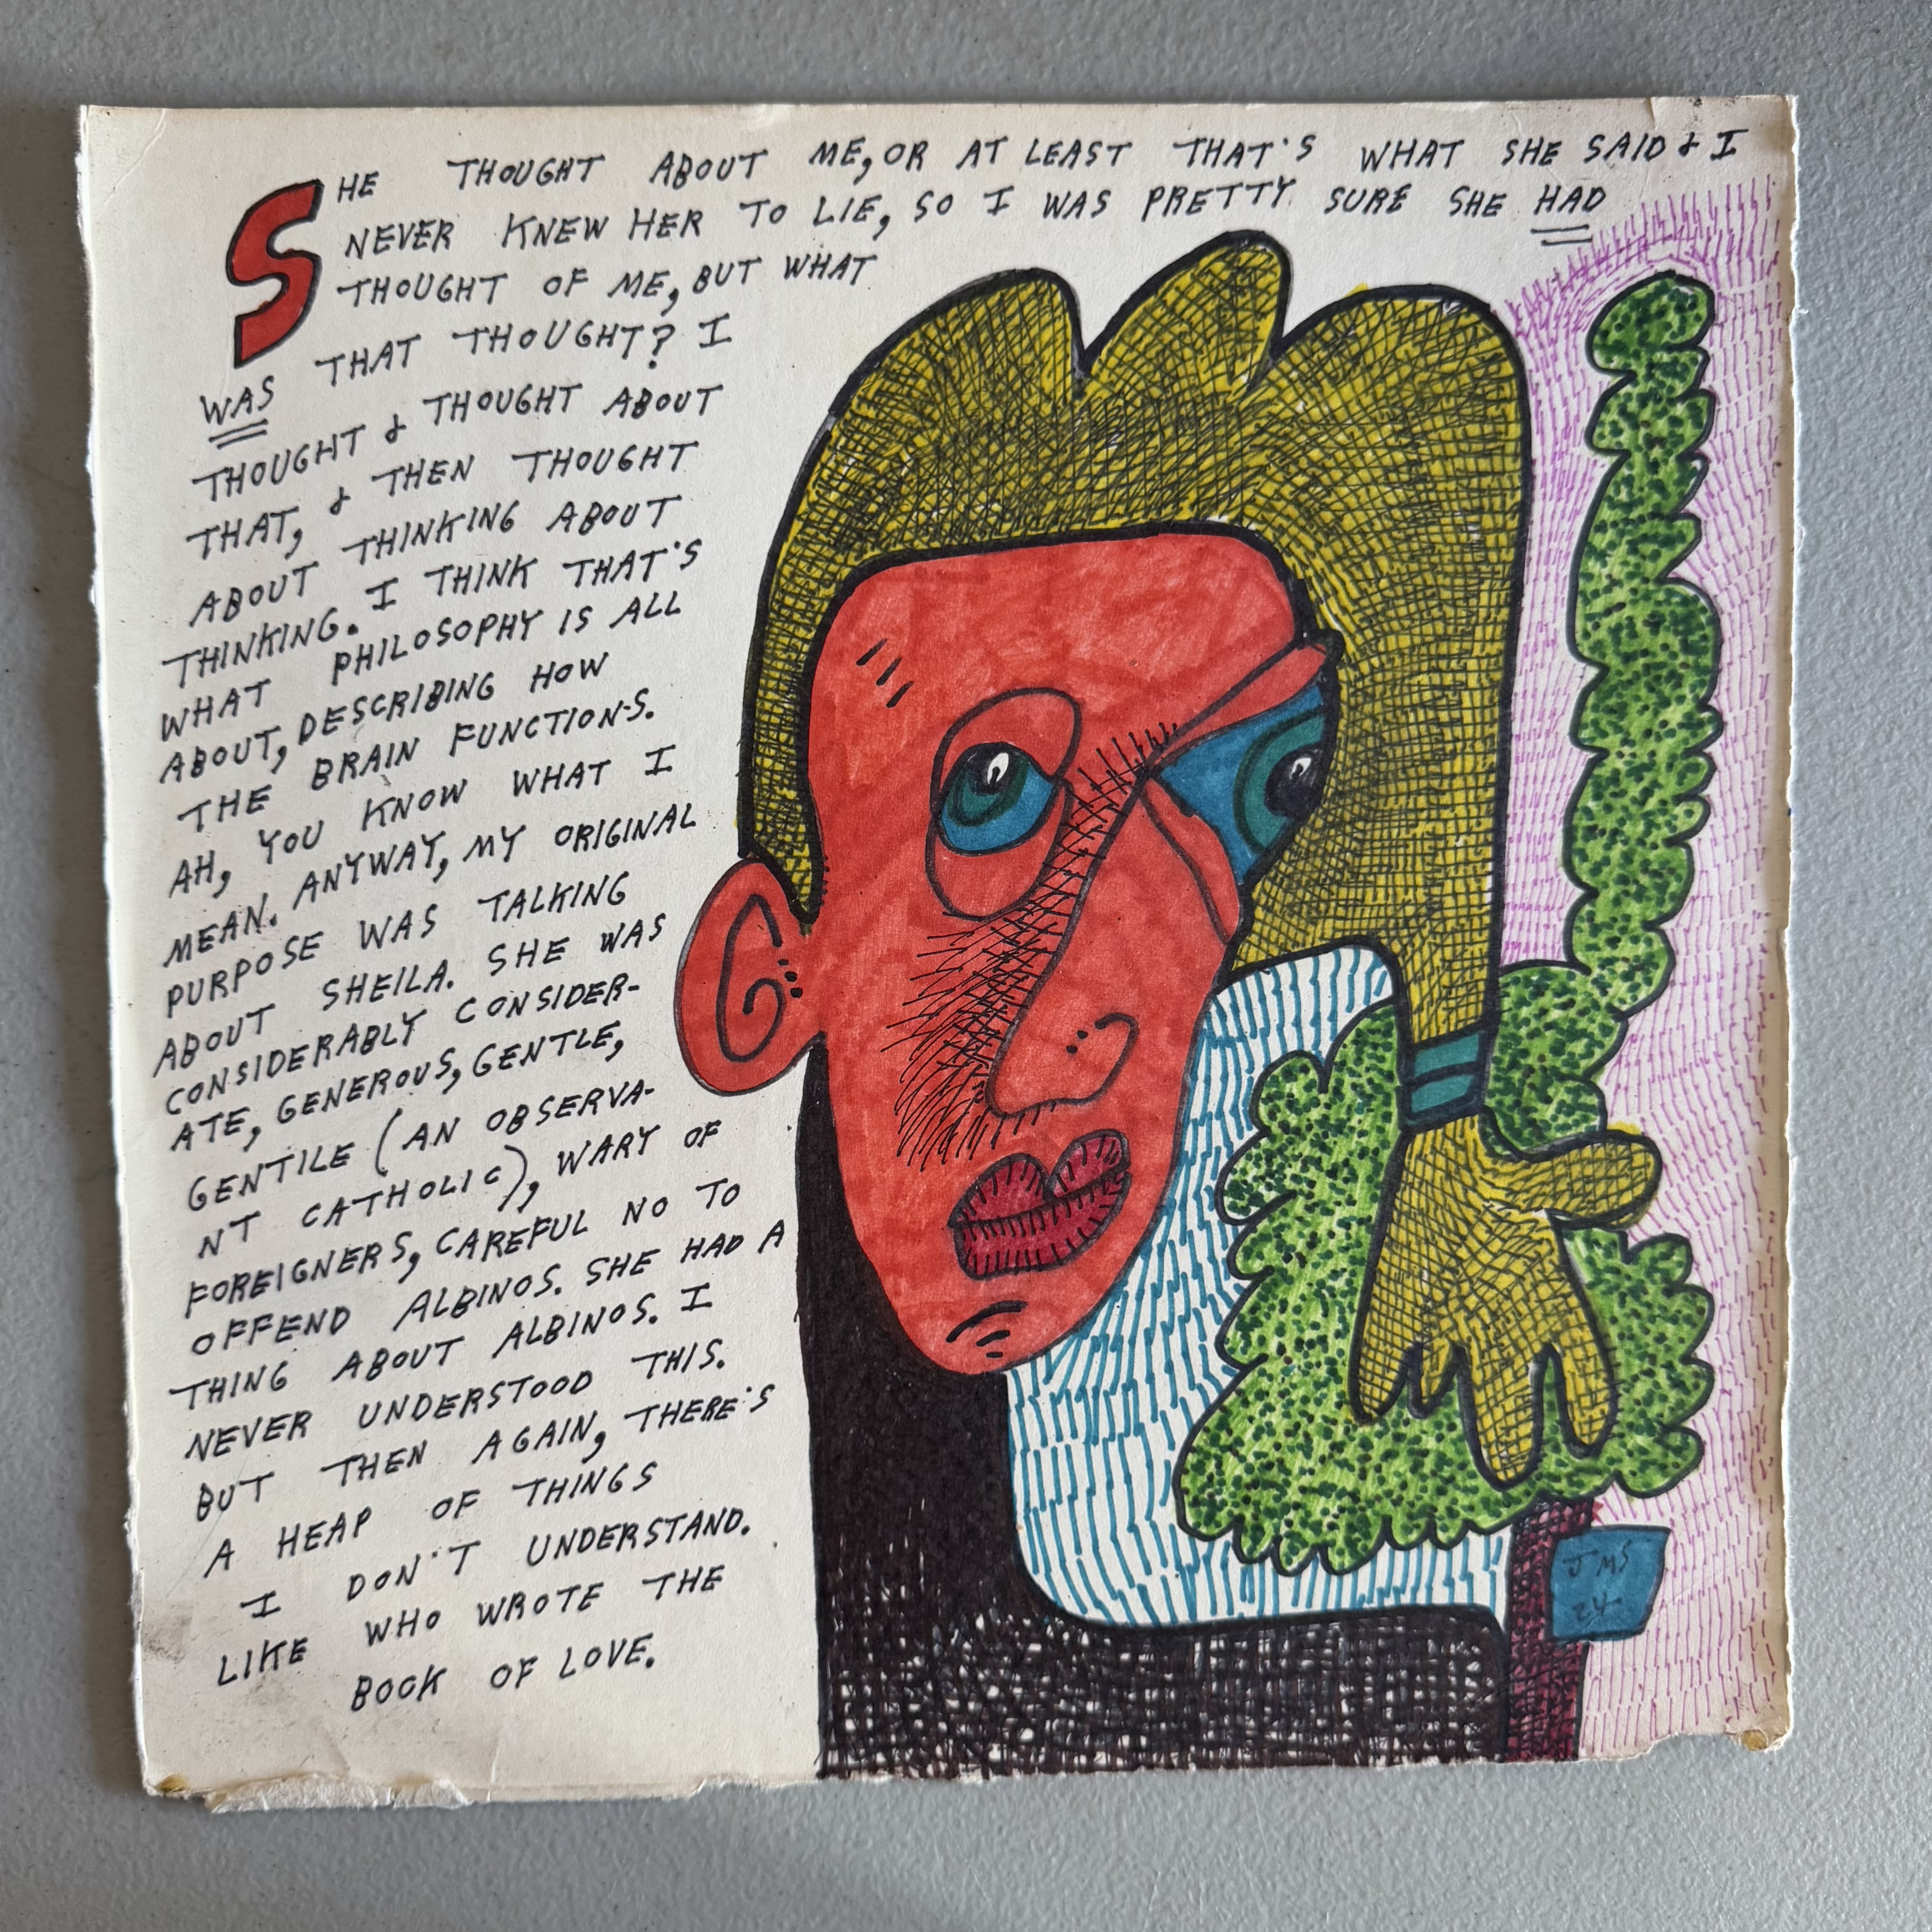 SHE THOUGHT ABOUT ME, OR AT LEAST THAT'S WHAT SHE SAID & I
NEVER KNEW HER TO LIE, SO I WAS PRETTY SURE SHE HAD
THOUGHT OF ME, BUT WHAT
WAS THAT THOUGHT? I
THOUGHT & THOUGHT ABOUT
THAT, & THEN THOUGHT
ABOUT THINKING ABOUT
THINKING. I THINK THAT'S
WHAT PHILOSOPHY IS ALL
ABOUT, DESCRIBING HOW
THE BRAIN FUNCTIONS.
AH, YOU KNOW WHAT I
MEAN. ANYWAY, MY ORIGINAL
PURPOSE WAS TALKING
ABOUT SHEILA. SHE WAS
CONSIDERABLY CONSIDER-
ATE, GENEROUS, GENTLE,
GENTILE (AN OBSERVA-
NT CATHOLIC), WARY OF
FOREIGNERS, CAREFUL NO TO
OFFEND ALBINOS. SHE HAD A
THING ABOUT ALBINOS. I
NEVER UNDERSTOOD THIS.
BUT THEN AGAIN, THERE'S
A HEAP OF THINGS
I DON'T UNDERSTAND.
LIKE WHO WROTE THE
BOOK OF LOVE.
JMS
24